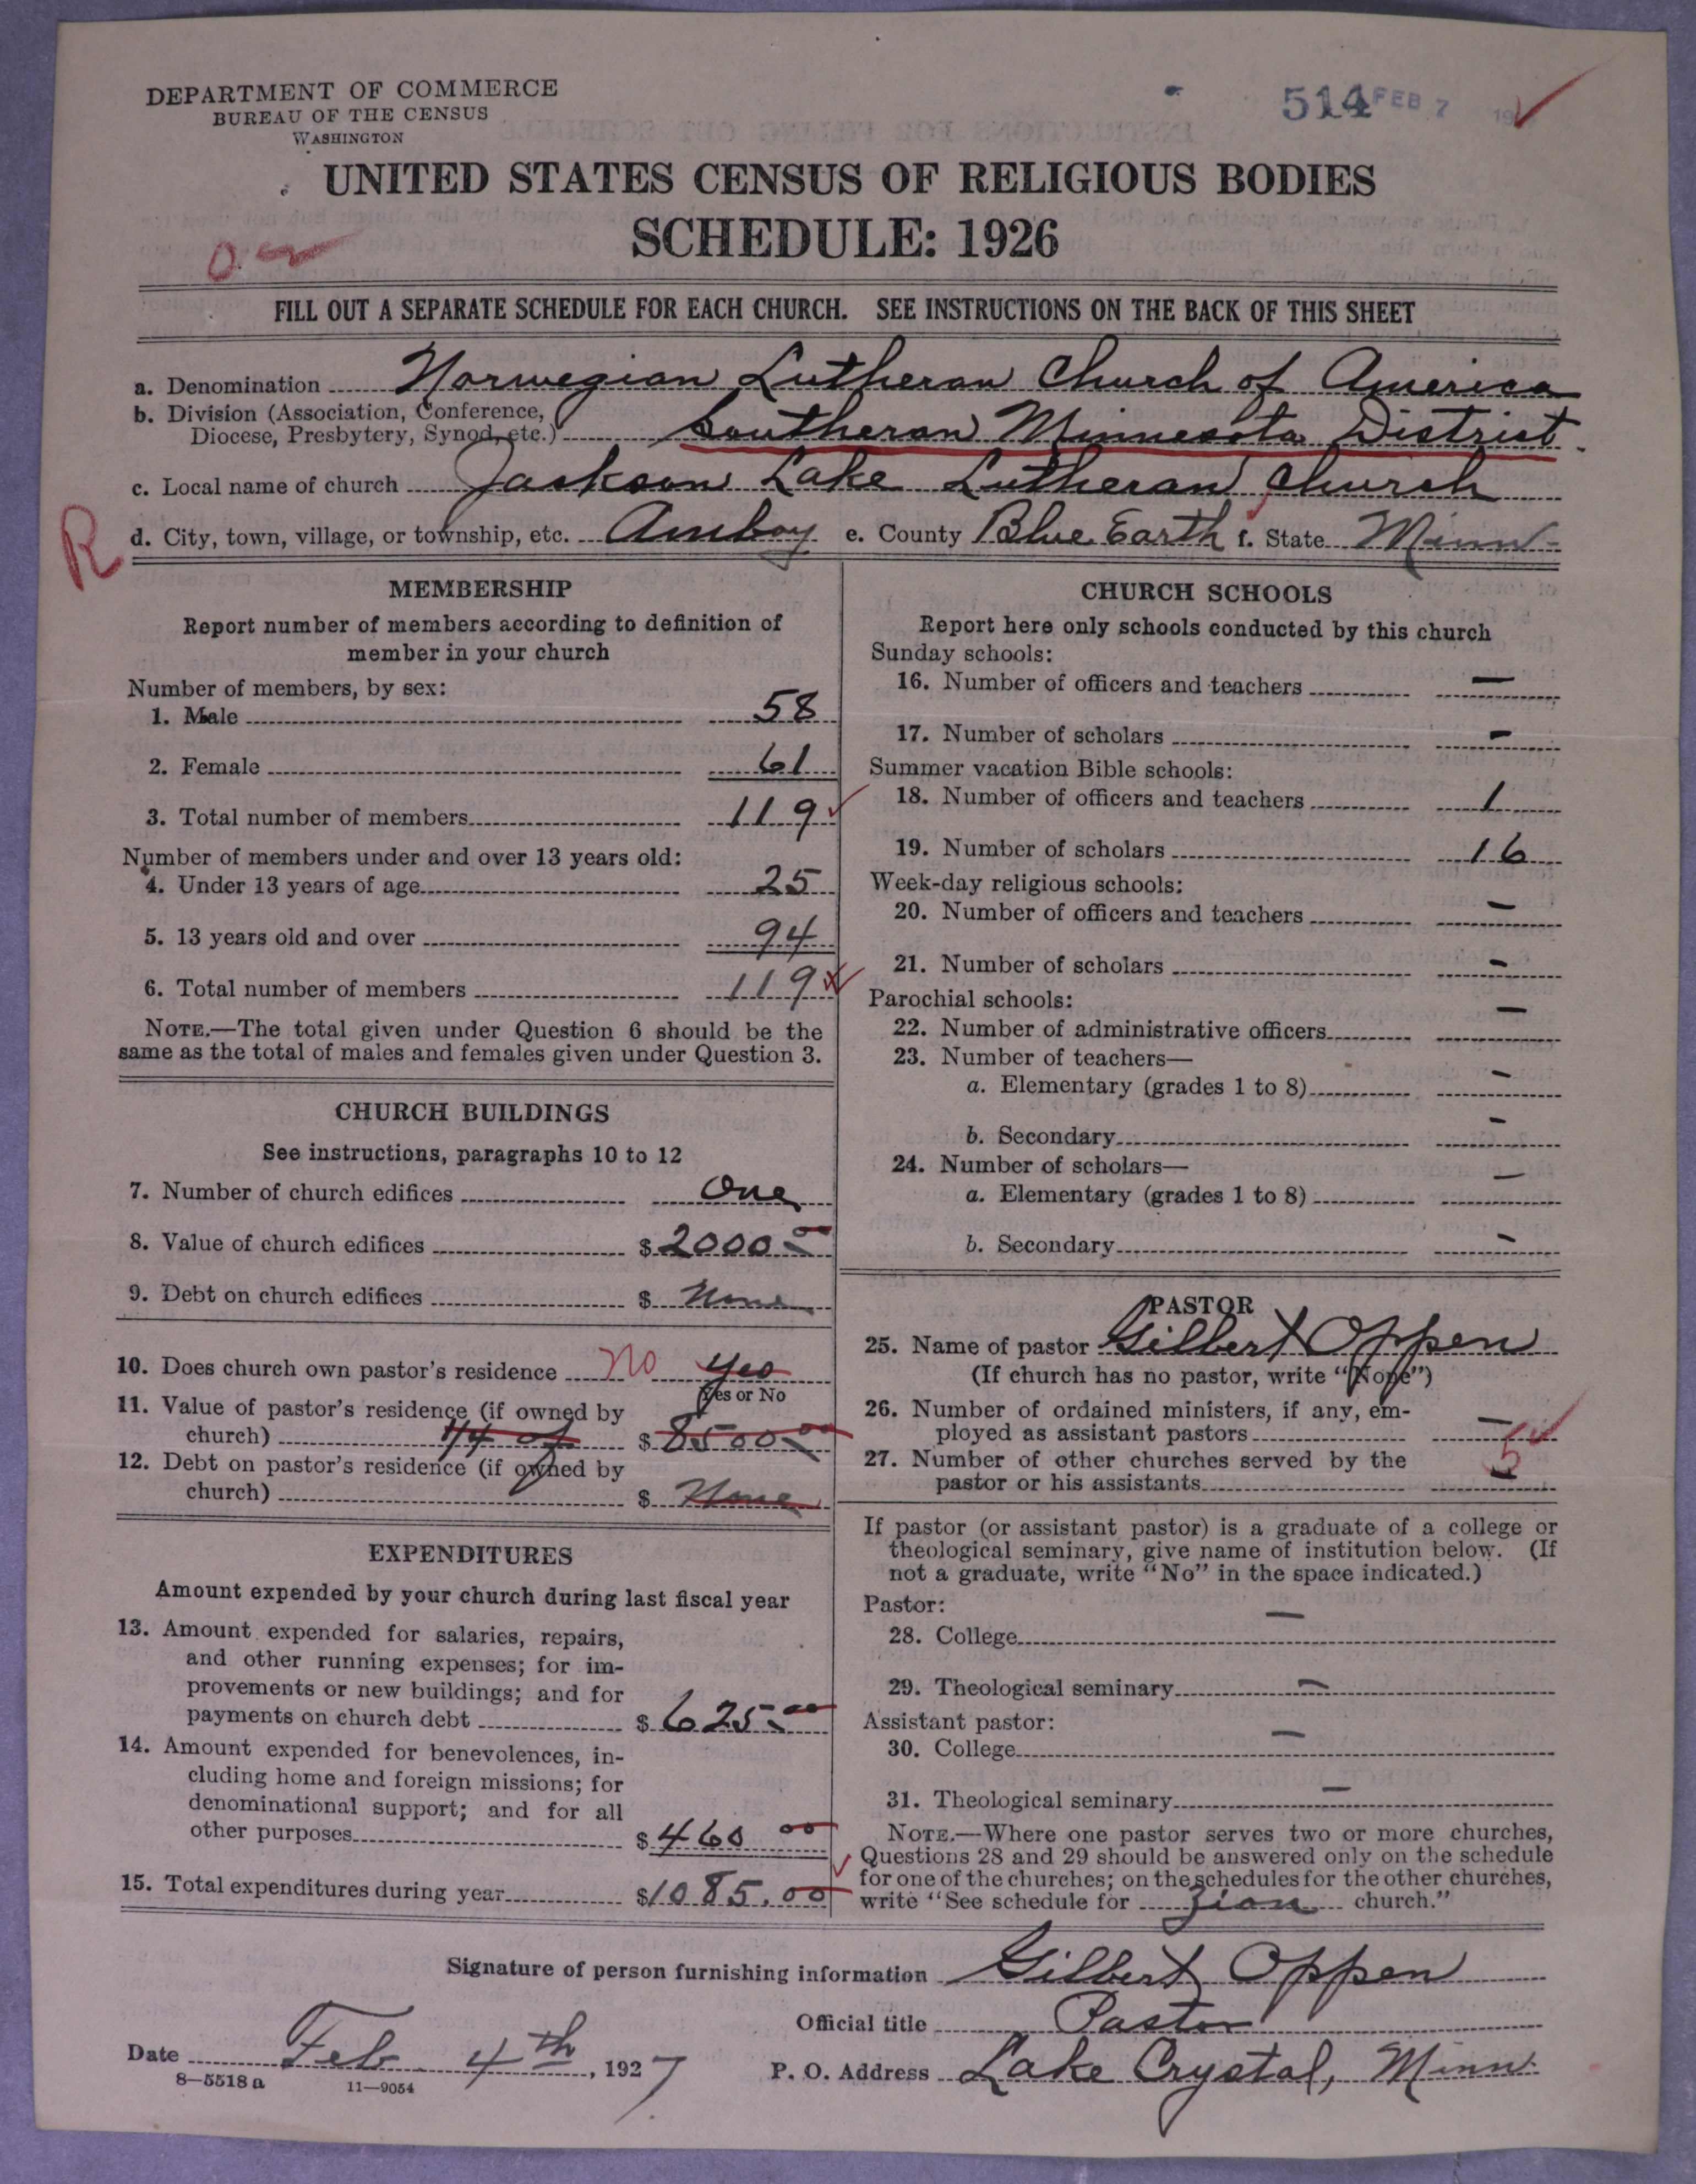 DEPARTMENT OF COMMERCE
BUREAU OF THE CENSUS
WASHINGTON
514 FEB 7
UNITED STATES CENSUS OF RELIGIOUS BODIES
SCHEDULE: 1926
FILL OUT A SEPARATE SCHEDULE FOR EACH CHURCH. SEE INSTRUCTIONS ON THE BACK OF THIS SHEET
a. Denomination Norwegian Lutheran Church of America
b. Division (Association, Conference, Diocese, Presbytery, Synod, etc.) Southern Minnesota District
c. Local name of church Jackson Lake Lutheran Church
R
d. City, town, village, or township, etc. Amboy e. County Blue Earth f. State Minn
MEMBERSHIP
Report number of members according to definition of
member in your church
Number of members, by sex:
1. Male 58
2. Female 61
3. Total number of members 119
Number of members under and over 13 years old:
4. Under 13 years of age 25
5. 13 years old and over 94
6. Total number of members 119
NOTE.—The total given under Question 6 should be the
same as the total of males and females given under Question 3.
CHURCH BUILDINGS
See instructions, paragraphs 10 to 12
7. Number of church edifices One
8. Value of church edifices $2000.00
9. Debt on church edifices $ None
10. Does church own pastor's residence No Yes
Yes or No
11. Value of pastor's residence (if owned by
church) 1/4 of $8500.00
12. Debt on pastor's residence (if owned by
church) $ None
EXPENDITURES
Amount expended by your church during last fiscal year
13. Amount expended for salaries, repairs,
and other running expenses; for im-
provements or new buildings; and for
payments on church debt $625.00
14. Amount expended for benevolences, in-
cluding home and foreign missions; for
denominational support; and for all
other purposes $460 00
15. Total expenditures during year $1085.00
CHURCH SCHOOLS
Report here only schools conducted by this church
Sunday schools:
16. Number of officers and teachers —
17. Number of scholars —
Summer vacation Bible schools:
18. Number of officers and teachers 1
19. Number of scholars 16
Week-day religious schools:
20. Number of officers and teachers —
21. Number of scholars —
Parochial schools:
22. Number of administrative officers —
23. Number of teachers—
a. Elementary (grades 1 to 8) —
b. Secondary —
24. Number of scholars—
a. Elementary (grades 1 to 8) —
b. Secondary —
PASTOR
25. Name of pastor Gilbert Oppen
(If church has no pastor, write "None")
26. Number of ordained ministers, if any, em-
ployed as assistant pastors —
27. Number of other churches served by the
pastor or his assistants 5
If pastor (or assistant pastor) is a graduate of a college or
theological seminary, give name of institution below. (If
not a graduate, write "No" in the space indicated.)
Pastor:
28. College —
29. Theological seminary —
Assistant pastor:
30. College —
31. Theological seminary —
NOTE.—Where one pastor serves two or more churches,
Questions 28 and 29 should be answered only on the schedule
for one of the churches; on the schedules for the other churches,
write "See schedule for Zion church."
Signature of person furnishing information Gilbert Oppen
Official title Pastor
Date Feb. 4th, 1927 P. O. Address Lake Crystal, Minn.
8—5518 a 11—9054